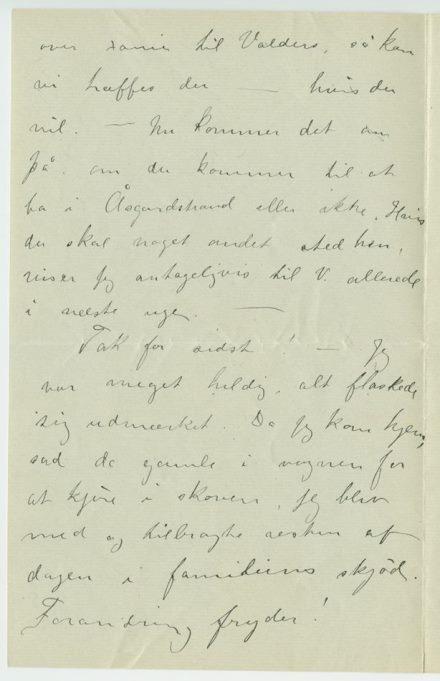 over  til Valders, så kan
vi træffes der — hvis du
vil. — Nu kommer det an
på, om du kommer til at
bo i Åsgardstrand eller ikke. Hvis
du skal noget andet sted hen,
reiser jeg antageligvis til V. allerede
i næste uge. —
Tak for sidst! — Jeg
var meget heldig, alt flaskede
sig udmærket. Da jeg kom hjem,
sad de gamle i vognen for
at kjøre i skoven, jeg blev
med og tilbragte resten af
dagen i familiens skjød.
Forandring fryder!